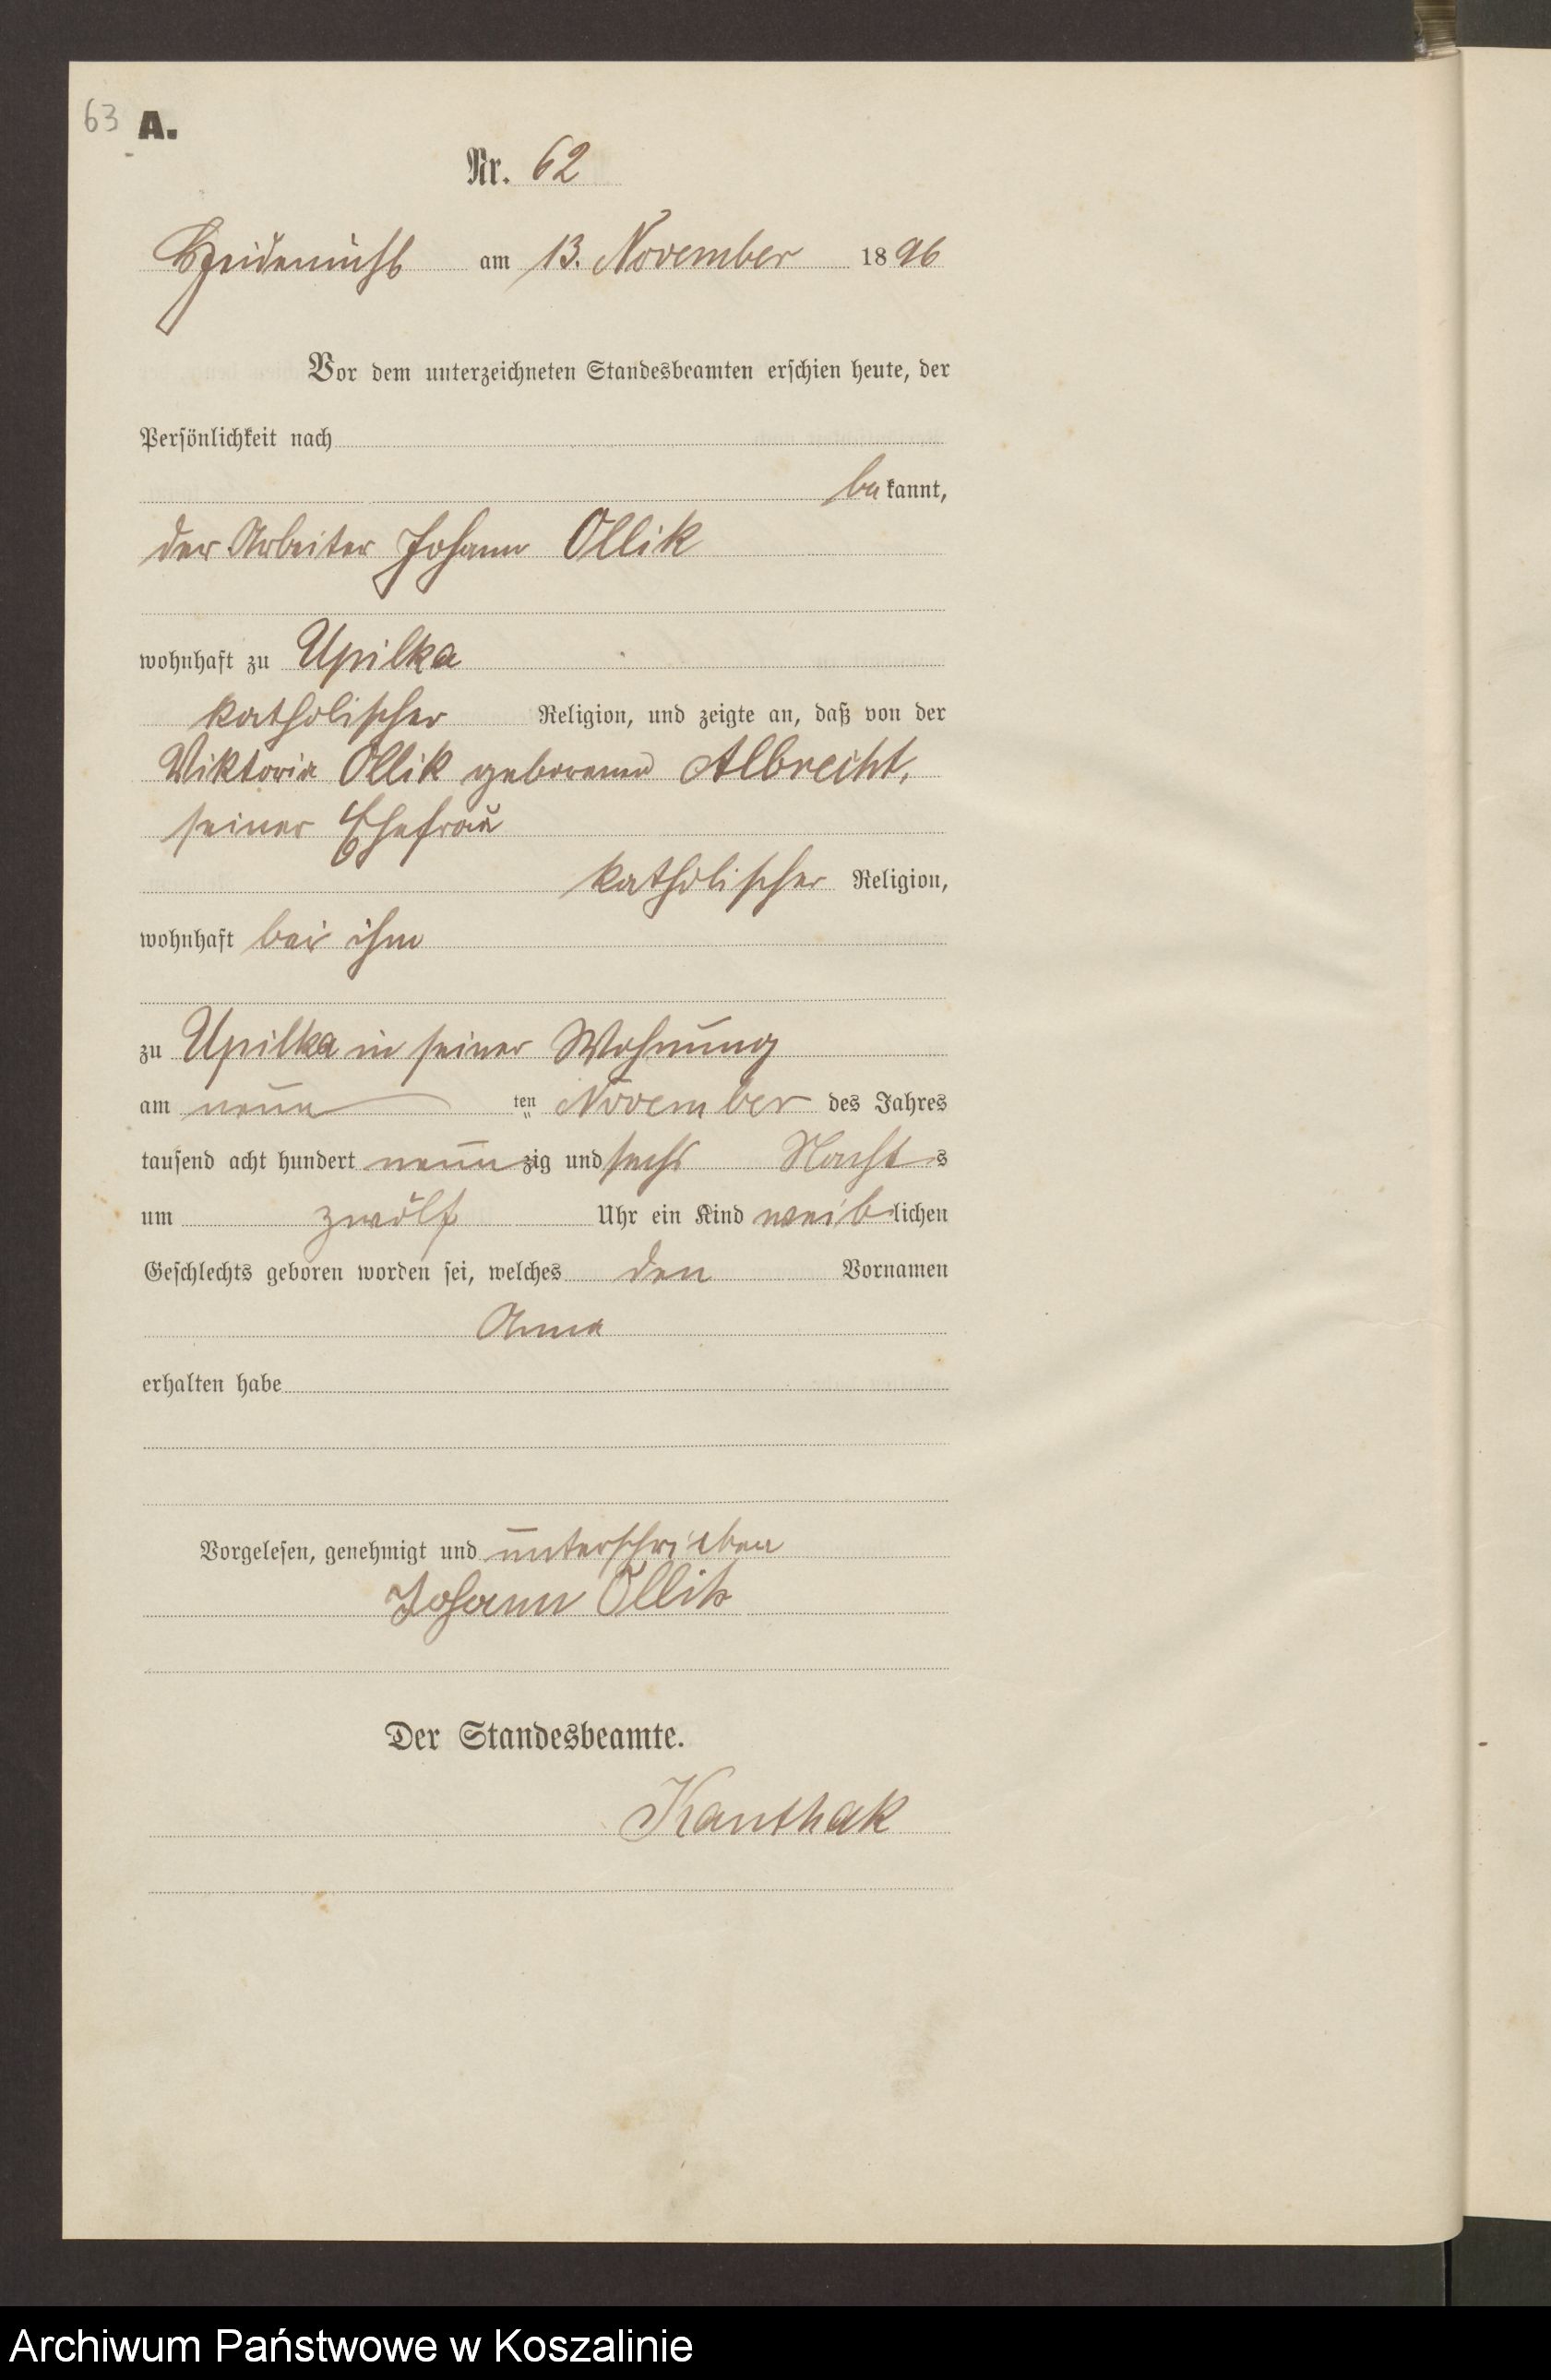 63 A.
Nr. 62
Heidemühl am 13. November 1896
Vor dem unterzeichneten Standesbeamten erschien heute, der
Persönlichkeit nach
bekannt,
der Arbeiter Johann Ollik
wohnhaft zu Upilka
katholischer Religion, und zeigte an, daß von der
Viktoria Ollik geborenen Albrecht,
seiner Ehefrau
katholischer Religion,
wohnhaft bei ihm
zu Upilka in seiner Wohnung
am neun ten November des Jahres
tausend acht hundert neunzig und sechs Nachts
um zwölf Uhr ein Kind weiblichen
Geschlechts geboren worden sei, welches den Vornamen
Anna
erhalten habe
Vorgelesen, genehmigt und unterschrieben
Johann Ollik
Der Standesbeamte.
Kanthak
Archiwum Państwowe w Koszalinie